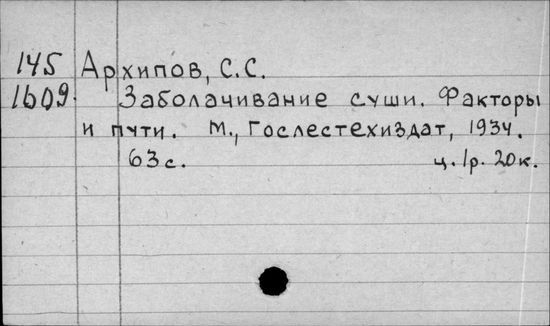 145 Архипов, С.С.
1609. Заболачивание суши. Факторы
и пути. М., Гослестехиздат, 1934.
63 с. ц. 1р. 20к.